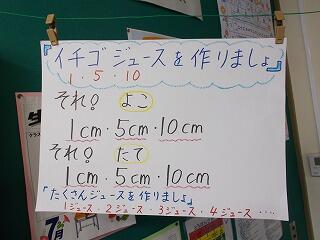 『イチゴジュースを作りましょ』
1・5・10
それ! よこ
1cm・5cm・10cm
それ! たて
1cm・5cm・10cm
「たくさんジュースを作りましょ」
1ジュース・2ジュース・3ジュース・4ジュース・・・・
7月